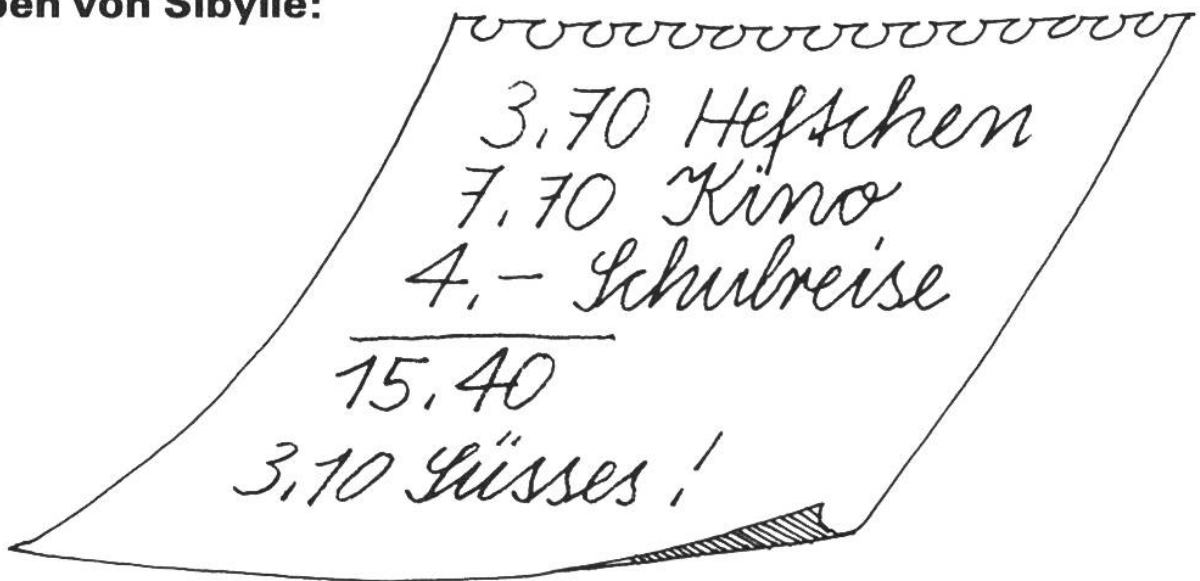 ben von Sibylle:
3,70 Heftchen
7,70 Kino
4,– Schulreise
15,40
3,10 Süsses!